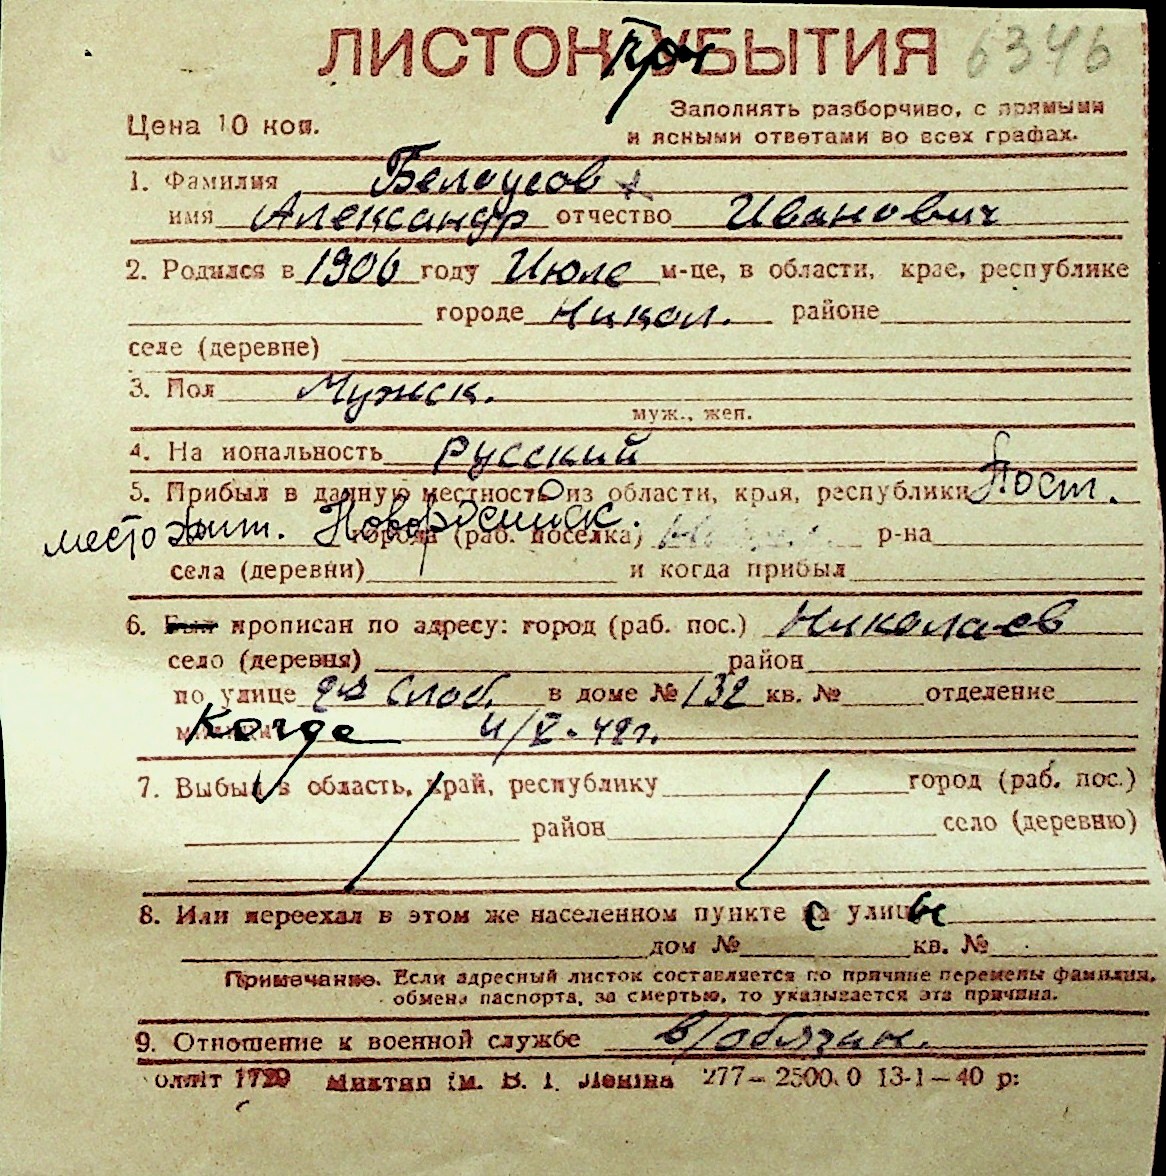 ЛИСТОК УБЫТИЯ 6346
Цена 10 коп.
Заполнять разборчиво, с прямыми
и ясными ответами во всех графах.
1. Фамилия Белоусов
имя Александр отчество Иванович
2. Родился в 1906 году Июле м-це, в области, крае, республике
городе Никол. районе
селе (деревне)
3. Пол Мужск.
муж., жен.
4. На иональность русский
5. Прибыл в данную местность из области, края, республики Пост.
место жит. Новоросийск.
города (раб. поселка) р-на
села (деревни) и когда прибыл
6. Был прописан по адресу: город (раб. пос.) Николаев
село (деревня) район
по улице 2я Слоб. в доме № 132 кв. № отделение
Когда 4/V-48г.
7. Выбыл в область, край, республику город (раб. пос.)
район село (деревню)
8. Или переехал в этом же населенном пункте с улицы
дом № кв. №
Примечание. Если адресный листок составляется по причине перемены фамилии,
обмена паспорта, за смертью, то указывается эта причина.
9. Отношение к военной службе в/обязан.
Міктип ім. В. І. Леніна 277— 13-1—40 р: